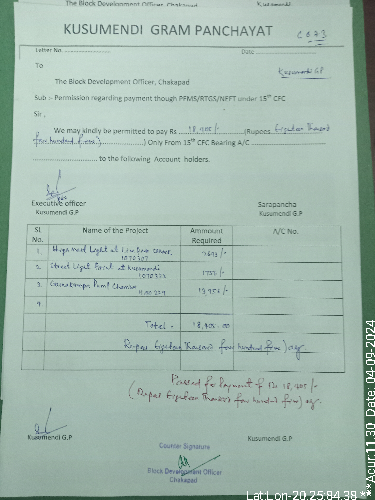 The Block Development Officer, Chakapad
KUSUMENDI GRAM PANCHAYAT
Letter No.
Date
To
Kusumendi GP
The Block Development Officer, Chakapad
Sub :- Permission regarding payment though PFMS/RTGS/NFFT under 15th CFC
Sir,
We may kindly be permitted to pay Rs. 18,405/- (Rupees Eighteen Thousand
four hundred five) Only From 15th CFC Bearing A/C
to the following Account holders.
Executive officer Sarapancha
Kusumendi G.P Kusumendi G.P
SL No. Name of the Project Ammount Required A/C No.
1. Light at
2. Street Light at Kusumendi 1752/-
3.
4
Total - 18,405.00
Rupees Eighteen Thousand four hundred five) only
Passed for Payment of Rs 18,405/-
(Rupees Eighteen Thousand four hundred five) only
Kusumendi G.P Kusumendi G.P
Counter Signature
Block Development Officer
Chakapad
Lat Lon-20.25:84.38 ***Acur:11.30 Date: 04-09-2024